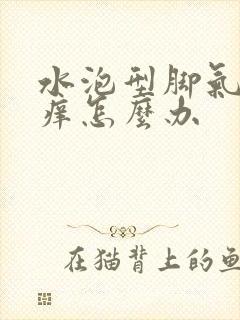 水泡型脚氣
痒怎麼办
在猫背上的鱼